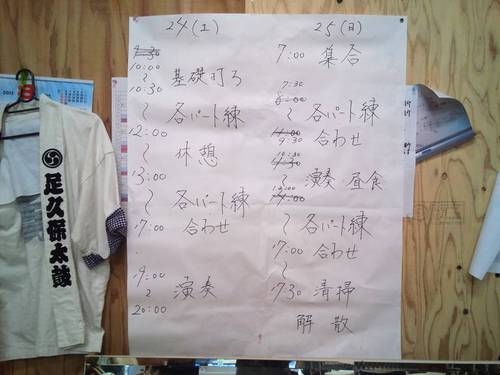 24(土)
9:30
10:00
～ 基礎打ち
10:30
～ 各パート練
12:00
～ 休憩
13:00
～ 各パート練
17:00 合わせ
19:00
～ 演奏
20:00
25(日)
7:00 集合
7:30
8:00
～ 各パート練
9:30 合わせ
10:30
～ 演奏 昼食
～ 各パート練
17:00 合わせ
～
17:30 清掃
解散
足久保太鼓
2011